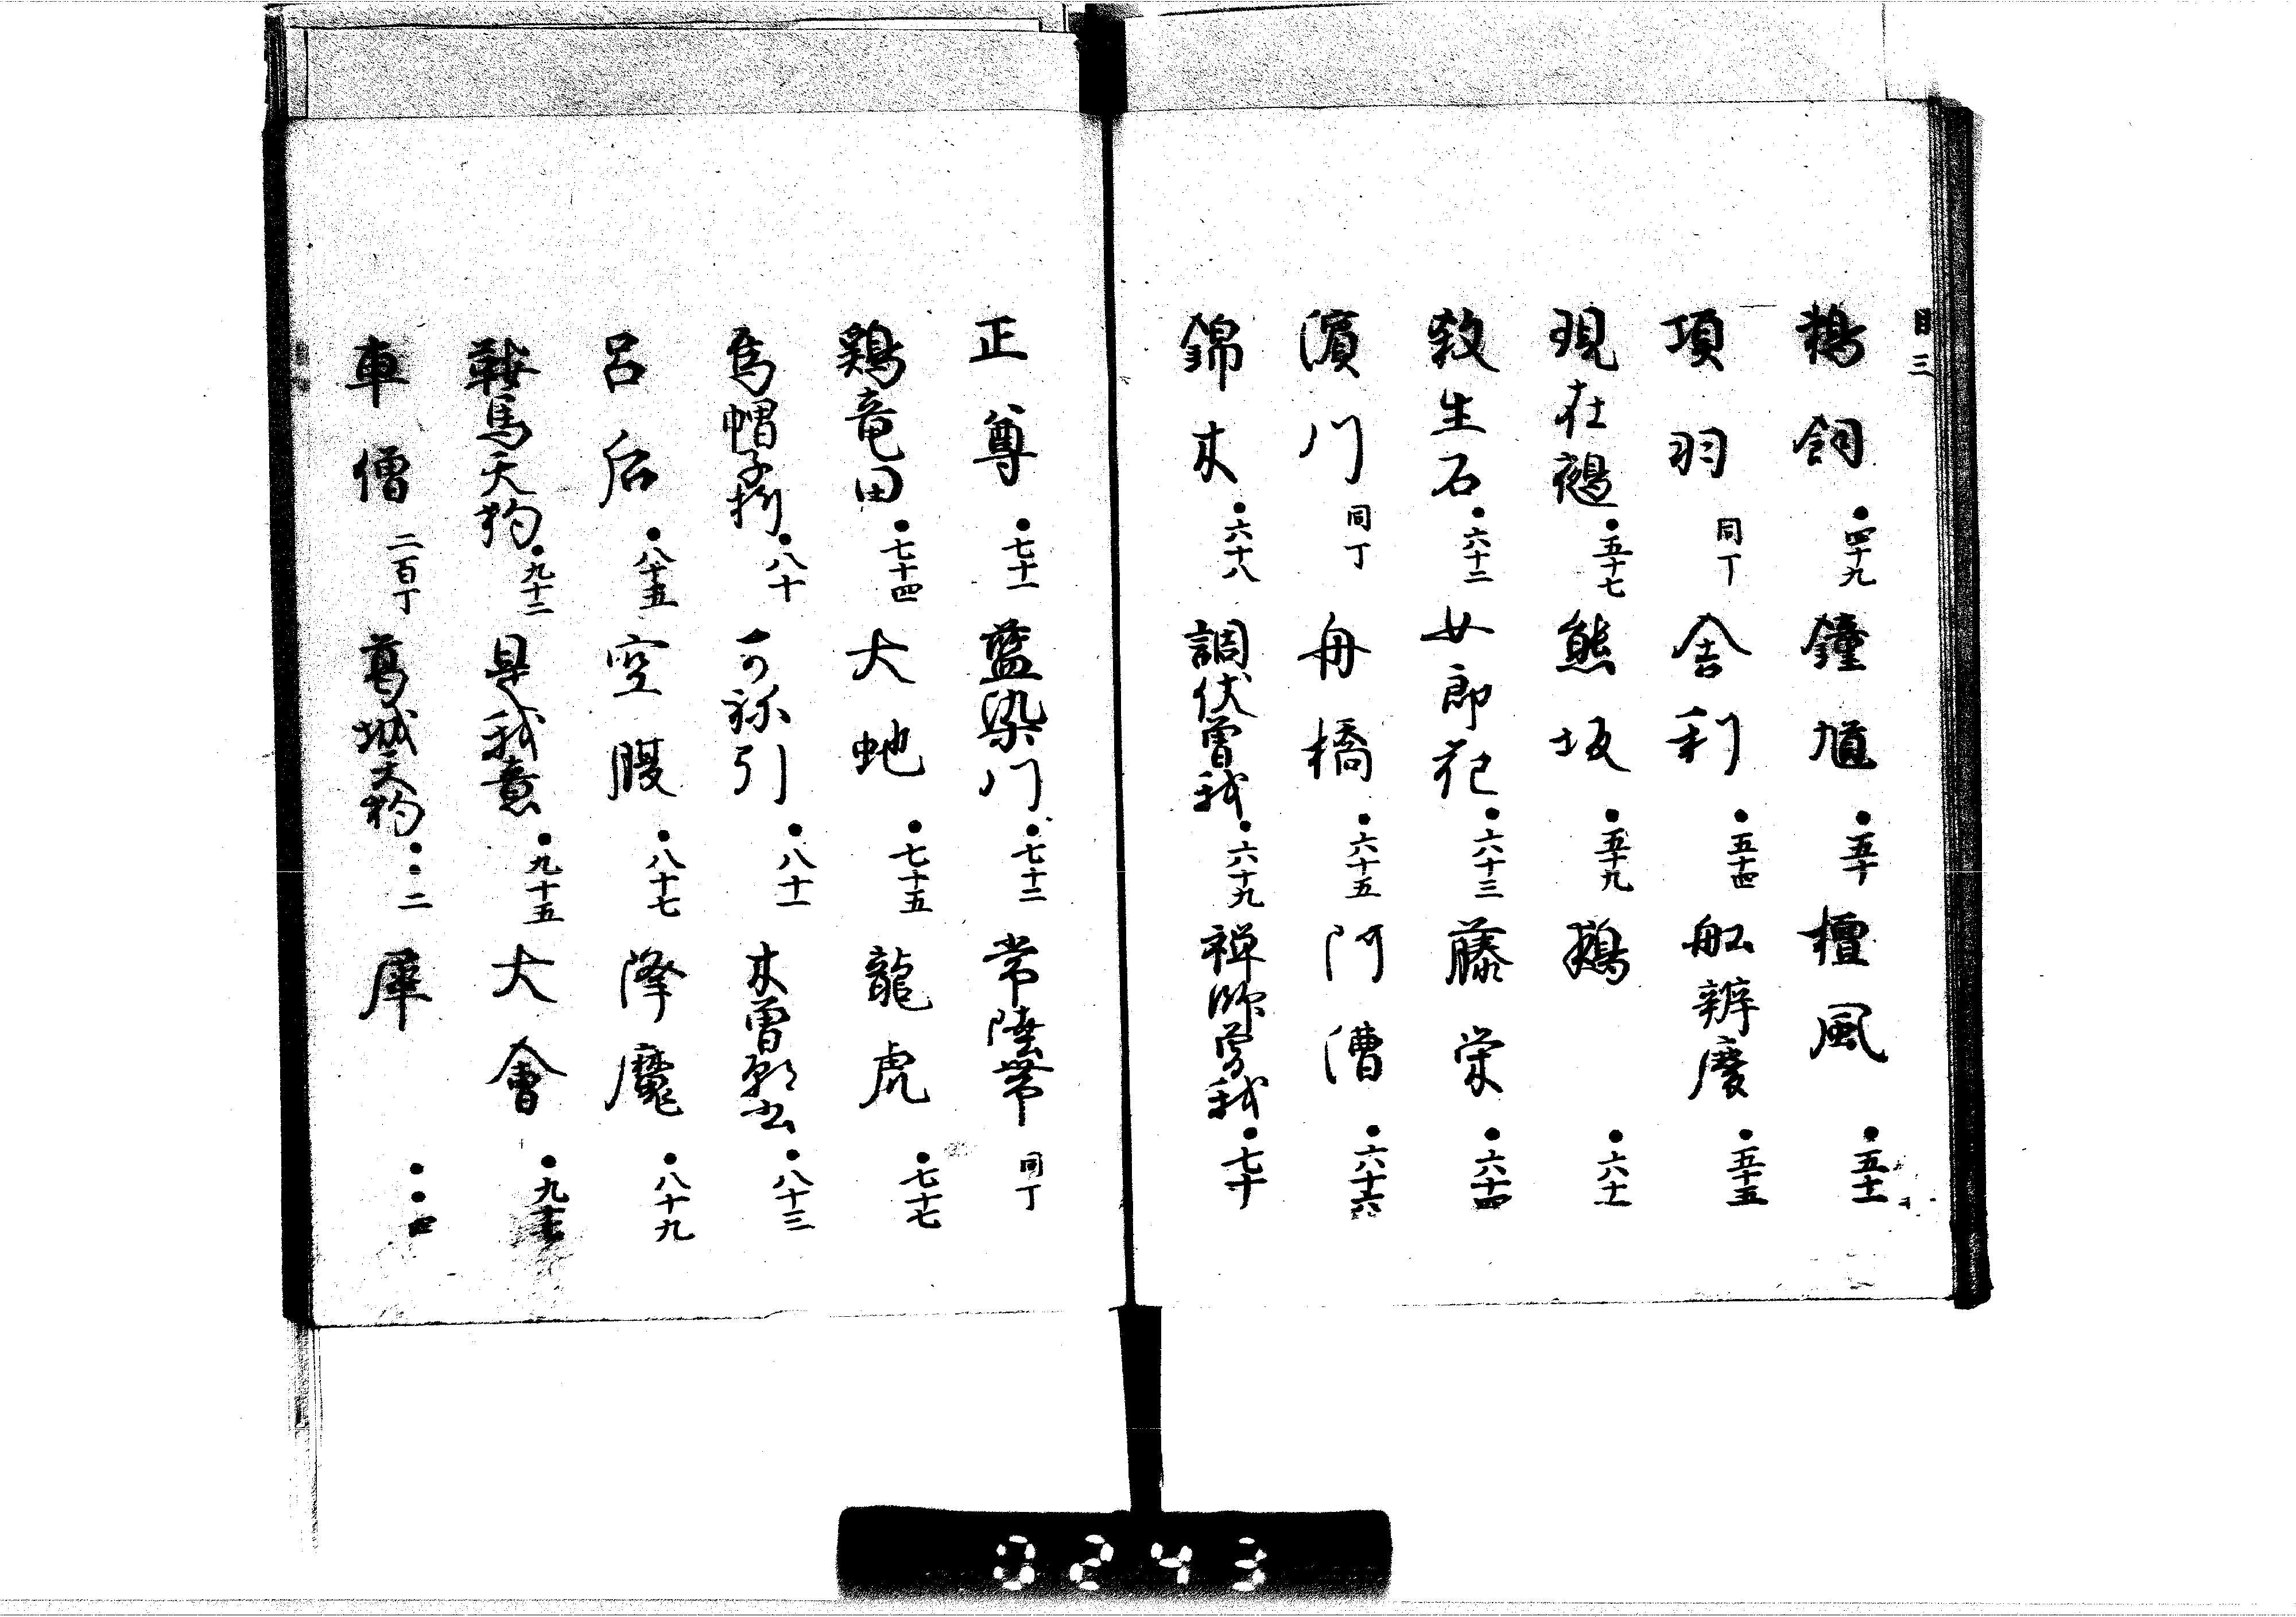 目三
鵜飼 •四十九 鐘馗 •五十 檀風 •五十一
項羽 同丁 舎利 •五十四 舩辨慶 •五十五
現在鵺 •五十七 熊坂 •五十九 鵺 •六十一
殺生石 •六十二 女郎花 •六十三 藤栄 •六十四
濱川 同丁 舟橋 •六十五 阿漕 •六十六
錦木 •六十八 調伏曽我 •六十九 禅師曽我 •七十
正尊 •七十一 藍染川 •七十二 常陸帯 同丁
鶏竜田 •七十四 大蛇 •七十五 龍虎 •七十七
烏帽子折 •八十 引 •八十一 木曽願書 •八十三
呂后 •八十五 空腹 •八十七 降魔 •八十九
鞍馬天狗 •九十二 是我意 •九十五 大會 •九十七
車僧 二百丁 葛城天狗 ••二 犀 ••四
0243